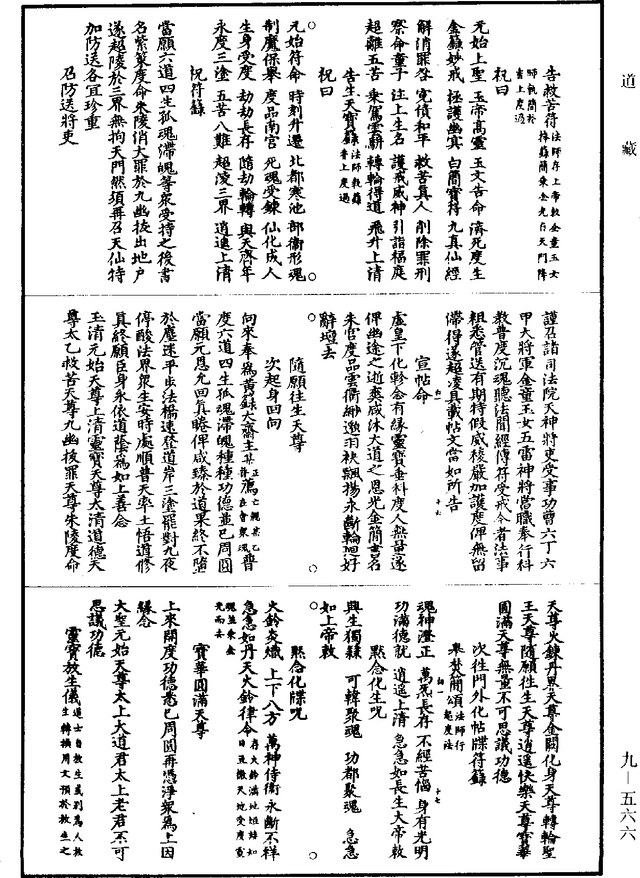 道藏
告救苦符法師存上帝敕金童玉女
師執簡於
捧籙簡乘金光自天門降
壽上度過
祝曰
元始上聖 玉帝高靈 玉文告命 濟死度生
金籙妙戒 極護幽冥 白簡寶符 九真仙經
解消罪咎 寃債和平 救苦真人 削除罪刑
察命童子 注上生名 護戒威神 引詣福庭
超離五苦 乘駕雲輧 轉輪得道 飛升上清
告生天寶籙法師執籙
香上度過
祝曰
元始符命 時刻升遷 北都寒池 部衛形魂
制魔保舉 度品南宮 死魂受鍊 仙化成人
生身受度 劫劫長存 隨劫輪轉 與天齊年
永度三塗 五苦八難 超凌三界 逍遙上清
祝符籙
當願六道四生孤魂滯魄等衆受持之後書
名紫篆度命朱陵消大罪於九幽拔出地戶
遂超陵於三界無拘天門然須再召天仙特
加防送各宜珍重
召防送將吏
謹召諸司法院天神將吏受事功曹六丁六
甲大將軍金童玉女五雷神將當職奉行科
教普度沉魂聽法聞經傳符受戒令者法事
粗悉管送有期特假威稜嚴加護度俾無留
滯得遂超凌具載帖文當如所告
宣帖命
虛皇下化軫念有緣靈寶垂科度人無量遂
俾幽途之逝爽咸沐大道之恩光金簡書名
朱宮度品雲衢緲邈羽袂飄揚永斷輪迴好
辭壇去
隨願往生天尊
次起身回向
向來奉爲黃錄大齋主某
度六道四生孤魂滯魄種種功德並已周圓
當願元恩允回真睠俾咸臻於道果終不墮
於塵迷平步法橋速登道岸三塗罷對九夜
停酸法界衆生安時處順普天率土悟道修
真終願臣身永依道蔭爲如上善念
玉清元始天尊上清靈寶天尊太清道德天
尊太乙救苦天尊九幽拔罪天尊朱陵度命
天尊火鍊丹界天尊金闕化身天尊轉輪聖
王天尊隨願往生天尊逍遙快樂天尊寶華
圓滿天尊無量不可思議功德
次往門外化帖牒符籙
舉焚簡頌法師行
起度法
魂神澄正 萬炁長存 不經苦惱 身有光明
功滿德就 逍遙上清 急急如長生大帝敕
默念化生呪
與生獨辣 可韓聚魂 功都聚魂 急急
如上帝敕
默念化牒呪
火鈴炎熾 上下八方 萬神侍衛 永斷不祥
急急如丹天火鈴律令
寶華圓滿天尊
上來開度功德悉已周圓再憑淨衆爲上因
緣念
大聖元始天尊太上大道君太上老君不可
思議功德
靈寶放生儀道士自放生或別爲人放
生轉換用文預於放生之
九—五六六